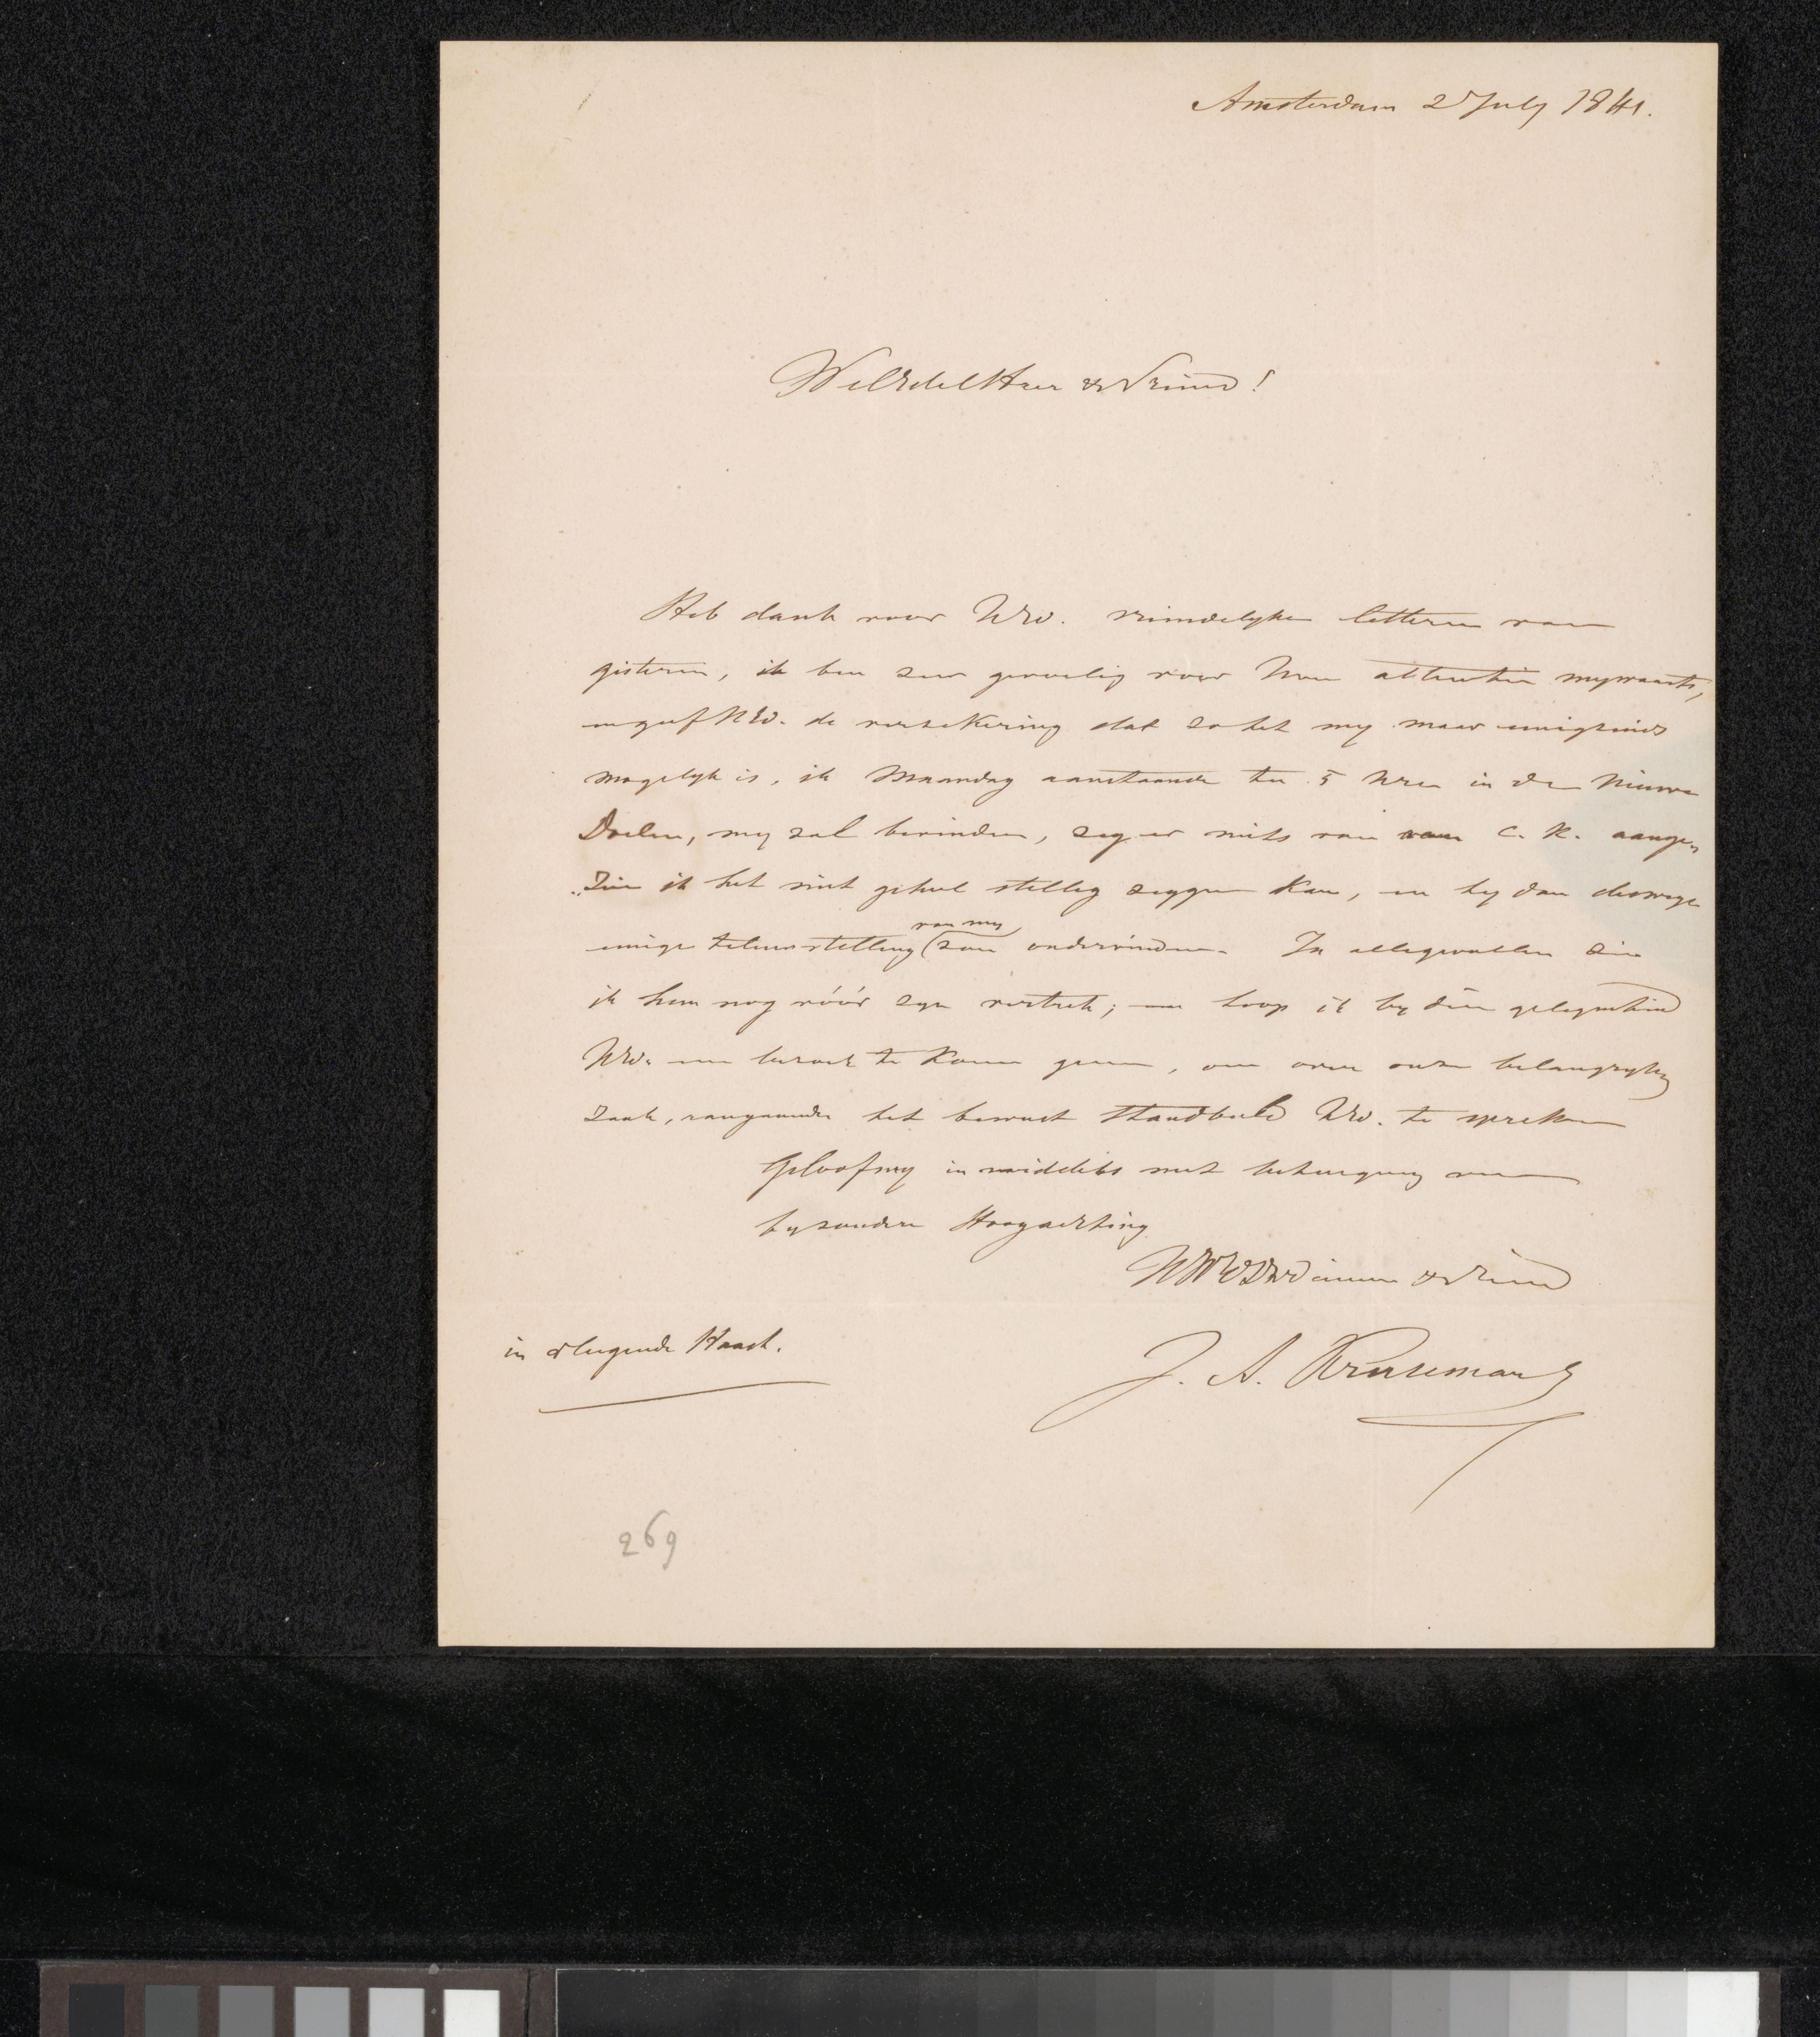 Amsterdam 2 July 1841.
WelEdel Heer & Vriend!
Heb dank voor UEd. vriendelyke letteren van
gisteren, ik ben zeer gevoelig voor Uwe attentie mywaarts,
en geef UEd. de verzekering dat zo het my maar eenigzinds
mogelyk is, ik Maandag aanstaande ten 5 Uren in de Nieuwe
Doelen, my zal bevinden, zeg er niets van aan C. K. aange„
„zien ik het niet geheel stellig zeggen kan, en hy dan deswege
van my
eenige teleurstelling (zou ondervinden. In allegevallen zie
ik hem nog vóór zyn vertrek; en hoop ik by die gelegenheid
UEd. een bezoek te komen geven, om over onze belangryke
zaak, aangaande het bewust Standbeeld UEd. te spreken
Geloof my in middels met betuiging van
byzondere Hoogachting
UWEDDW Dienaar & Vriend
in vliegende Haast.
J. A. Kruseman
269